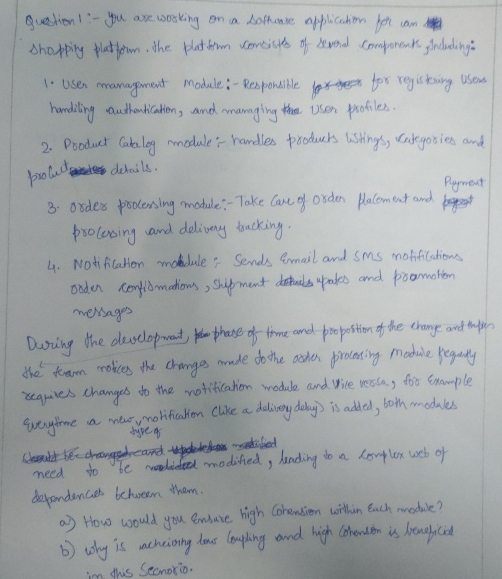 Question 1 :- you are working on a software application for an
shopping platform. the platform consists of several components, including:
1. User management Module :- Responsible for registering Users
handling authentication, and managing User profiles.
2. Product Catalog module :- handles products listings, categories and
product details.
3. order processing module :- Take Care of order placement and Payment
processing and delivery tracking.
4. Notification module :- Sends Email and SMS notifications
order confirmations, shipment updates and promotion
messages
During the development, phase of time and proportion of the change and
the team notices the changes made to the order processing module
requires changes to the notification module and vice versa, for Example
Everytime a new type of notification (like a delivery delay) is added, both modules
need to be modified, leading to a complex web of
dependencies between them.
a) How would you Ensure high Cohension within Each module?
b) why is acheiving low Coupling and high Cohension is beneficial
in this Scenorio.